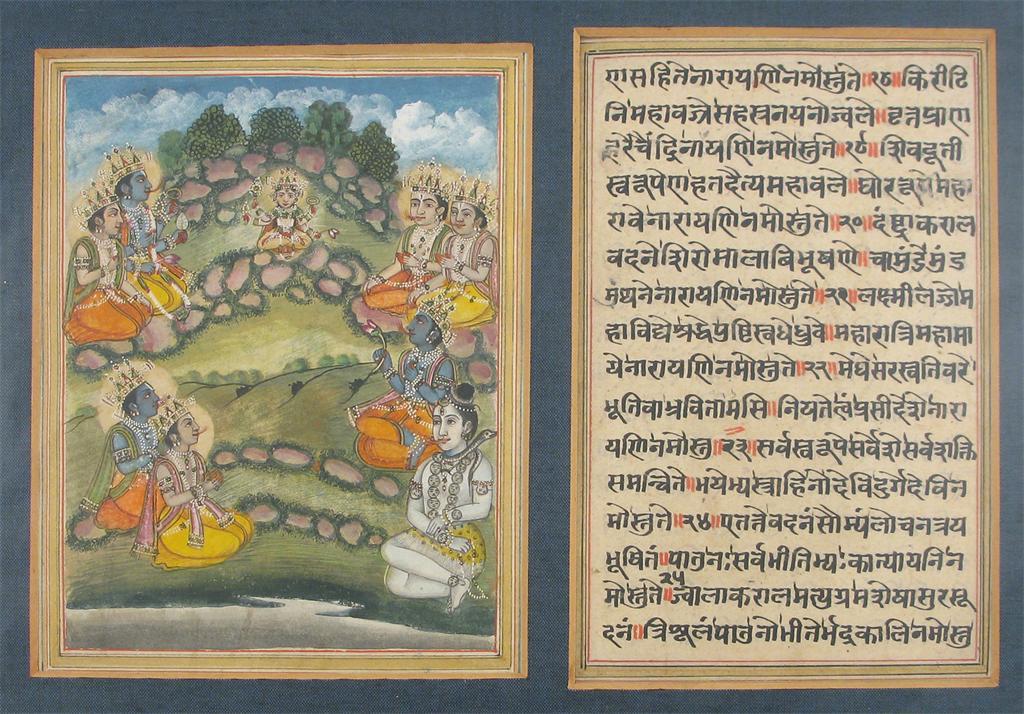 एासहितेनारायणिनमोस्तुते॥१८॥किरीटि
निमहावज्रेसहस्रनयनोज्वले॥वृत्रप्राण
हरेचैंद्रिनारायणिनमोस्तुते॥१९॥शिवदूती
स्वरूपेणहतदैत्यमहाबले॥घोररूपेमहा
रावेनारायणिनमोस्तुते॥२०॥दंष्ट्राकराल
वदनेशिरोमालाविभूषणे॥चामुंडेमुंड
मथनेनारायणिनमोस्तुते॥२१॥लक्ष्मीलज्जेम
हाविद्येश्रद्धेपुष्टिस्वधेध्रुवे॥महारात्रिमहामा
येनारायणिनमोस्तुते॥२२॥मेधेसरस्वतिवरे
भूतिबाभ्रवितामसि॥नियतेत्वंप्रसीदेशेनारा
यणिनमोस्तु॥२३॥सर्वस्वरूपेसर्वेशेसर्वशक्ति
समन्विते॥भयेभ्यस्त्राहिनोदेविदुर्गेदेविन
मोस्तुते॥२४॥एतत्तेवदनंसौम्यंलोचनत्रय
भूषितं॥पातुनःसर्वभीतिभ्यःकात्यायनिन
मोस्तुते॥२५ज्वालाकरालमत्युग्रमशेषासुरसू
दनं॥त्रिशूलंपातुनोभीतेर्भद्रकालिनमोस्तु